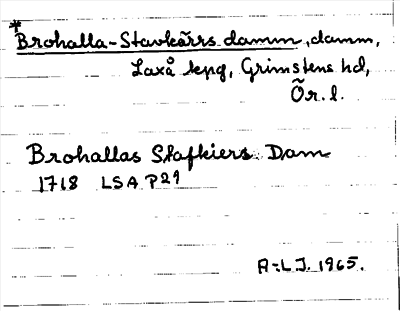 *Brohalla-Stavkärrs damm, damm,
Laxå kpg, Grimstens hd,
Ör. l.
Brohallas Stafkiers Dam
1718 LSA P29
A-L J. 1965.